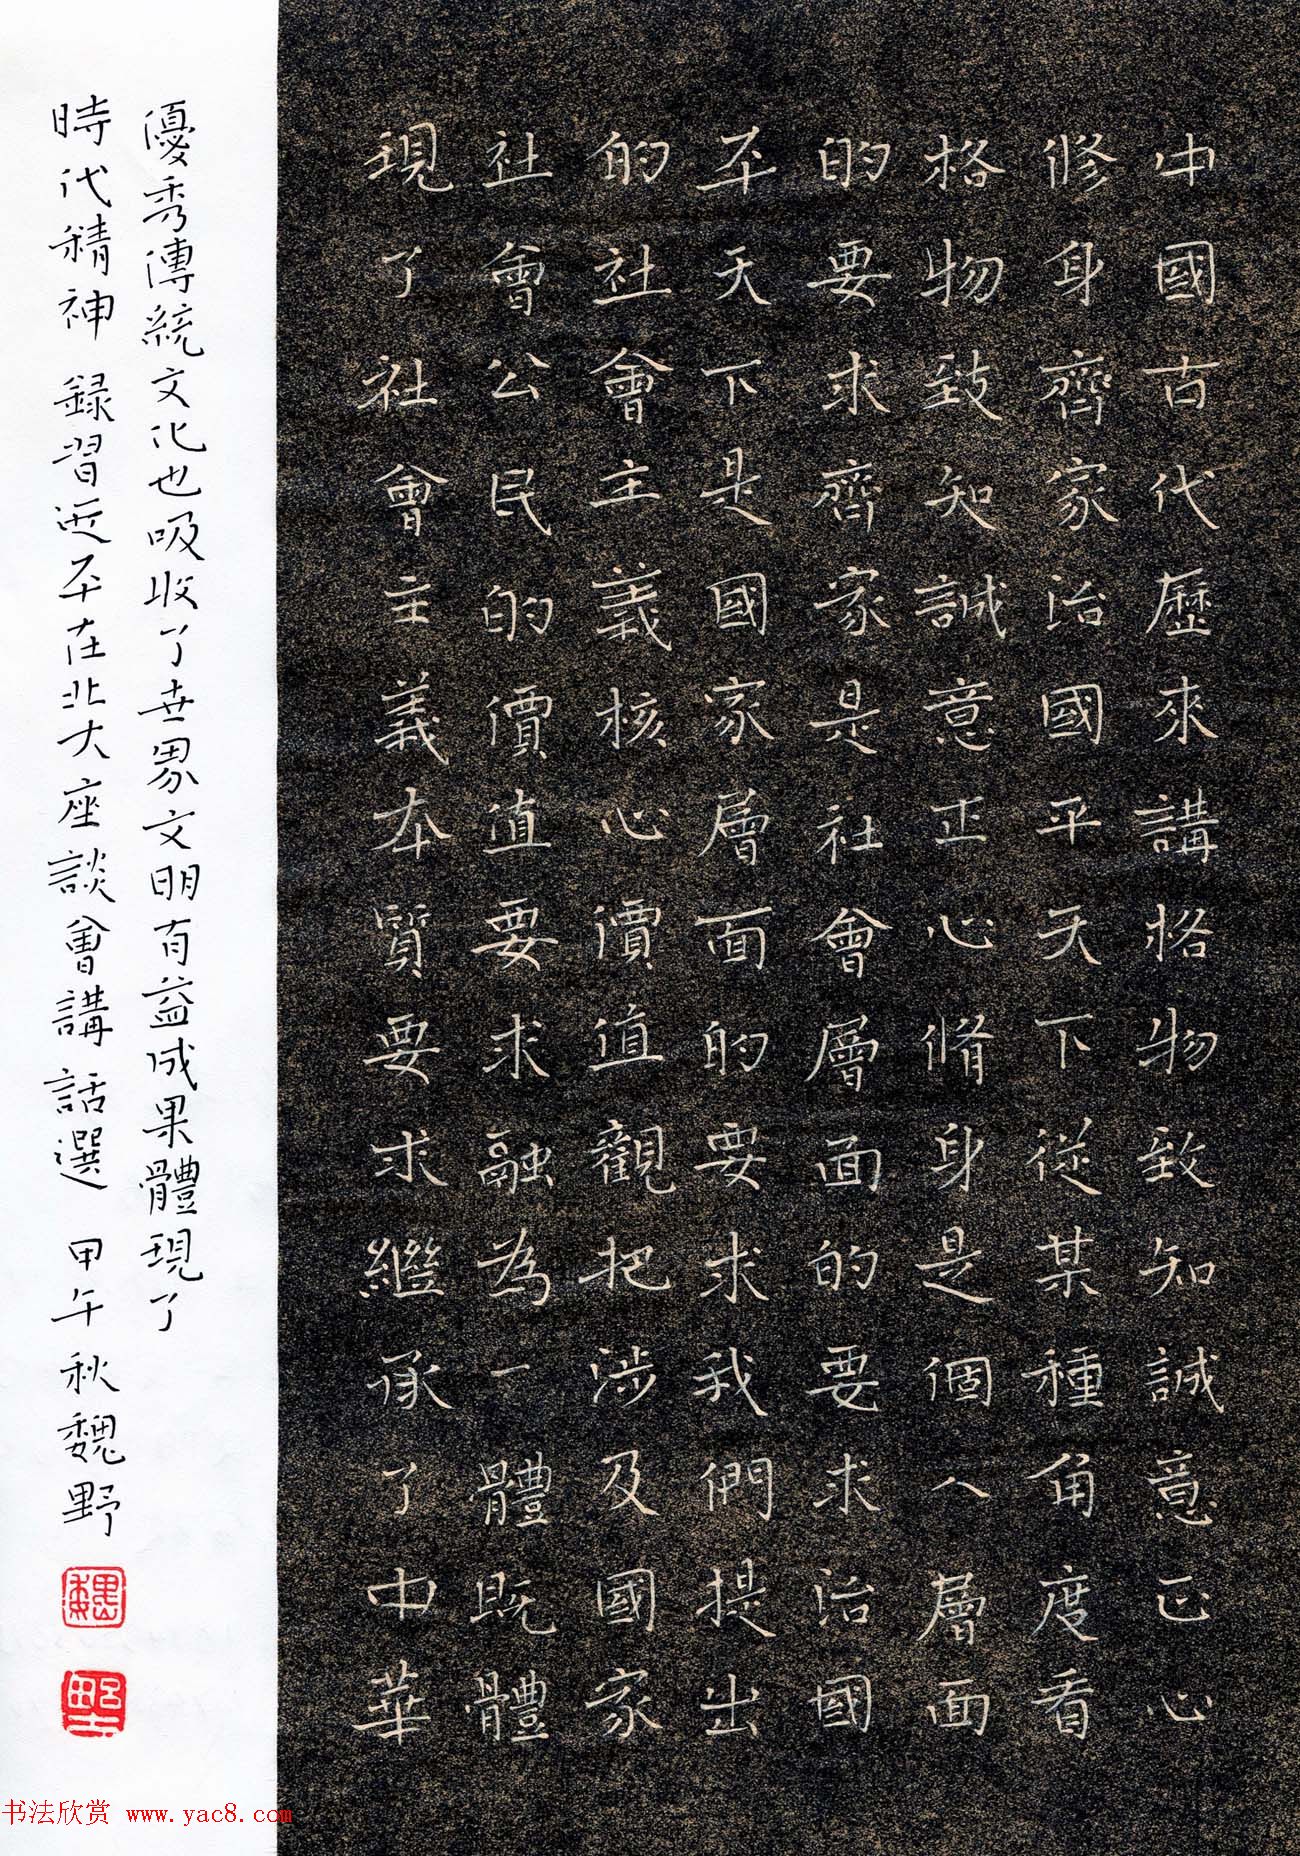 中國古代歷來講格物致知誠意正心
修身齊家治國平天下從某種角度看
格物致知誠意正心脩身是個人層面
的要求齊家是社會層面的要求治國
平天下是國家層面的要求我們提出
的社會主義核心價值觀把涉及國家
社會公民的價值要求融為一體既體
現了社會主義本質要求繼承了中華
優秀傳統文化也吸收了世界文明有益成果體現了
時代精神 録習近平在北大座談會講話選 甲午秋魏野
魏
野
书法欣赏 www.yac8.com